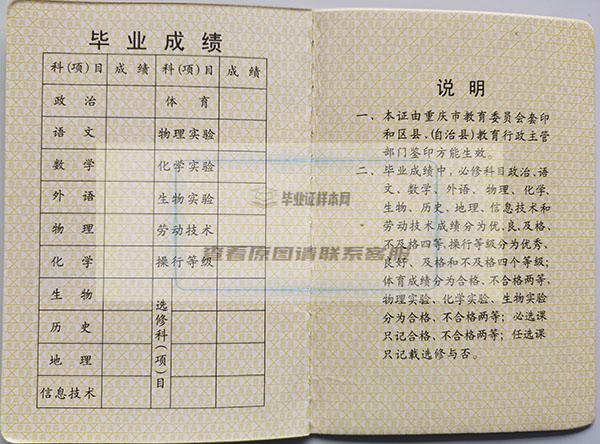 毕业成绩
科(项)目 成绩 科(项)目 成绩
政治 体育
语文 物理实验
数学 化学实验
外语 生物实验
物理 劳动技术
化学 操行等级
生物 选修科(项)目
历史
地理
信息技术
说明
一、本证由重庆市教育委员会套印
和区县、(自治县)教育行政主管
部门鉴印方能生效。
二、毕业成绩中,必修科目政治、语
文、数学、外语、物理、化学、
生物、历史、地理、信息技术和
劳动技术成绩分为优、良、及格、
不及格四等,操行等级分为优秀、
良好、及格和不及格四个等级;
体育成绩分为合格、不合格两等,
物理实验、化学实验、生物实验
分为合格、不合格两等;必选课
只记合格、不合格两等;任选课
只记载选修与否。
毕业证样本网
查看原图请联系客服